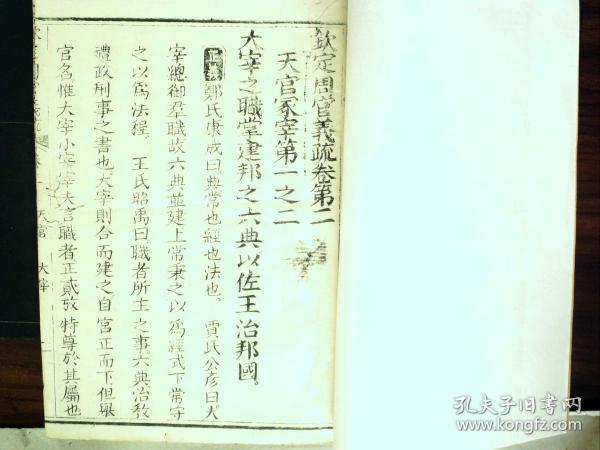 欽定周官義疏卷第二
天官冢宰第一之二
大宰之職掌建邦之六典以佐王治邦國。
正義 鄭氏康成曰典常也經也法也。 賈氏公彥曰大
宰總御羣職故六典並建上常秉之以爲經式下常守
之以爲法程。 王氏昭禹曰職者所主之事六典治教
禮政刑事之書也大宰則合而建之自宮正而下但舉
官名惟大宰小宰宰夫言職者正貳攷特尊於其屬也
天官 大宰
孔夫子旧书网
www.kongfz.com